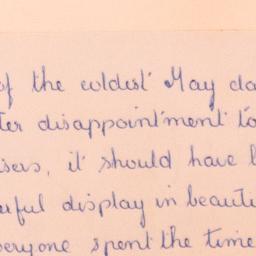 of the coldest May da
ter disappointment to
isers, it should have b
erful display in beauti
veryone spent the time